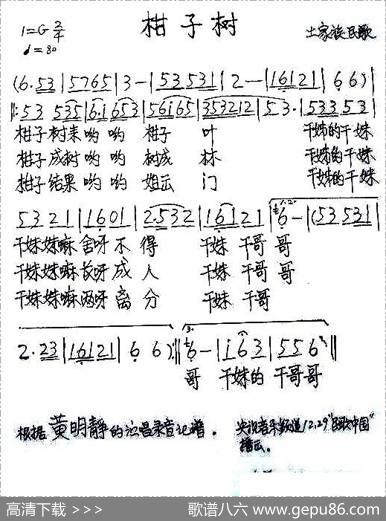 柑子树
1=G 2/4
土家族民歌
♩=80
(6·53|5765|3-|53531|2-|16121|66)|
‖:53 535|61653|56165|353212|53·|53353|
柑子树来哟 哟 柑子 叶 干妹的干妹
柑子成树哟 哟 树成 林 干妹的干妹
柑子结果哟 哟 门 干妹的干妹
5321|1601|2532|16121|6-|(53531|
干妹妹嘛舍呀不得 干妹 干哥哥
干妹妹嘛长呀成人 干妹 干哥哥
干妹妹嘛两呀离分 干妹 干哥
2·23|16121|66):‖6-|i63|556‖
哥 干妹的 干哥哥
根据黄明静的演唱录音记谱。
央视音乐频道12.29"民歌中国"
播出。
高清下载 >>>
歌谱八六 www.gepu86.com